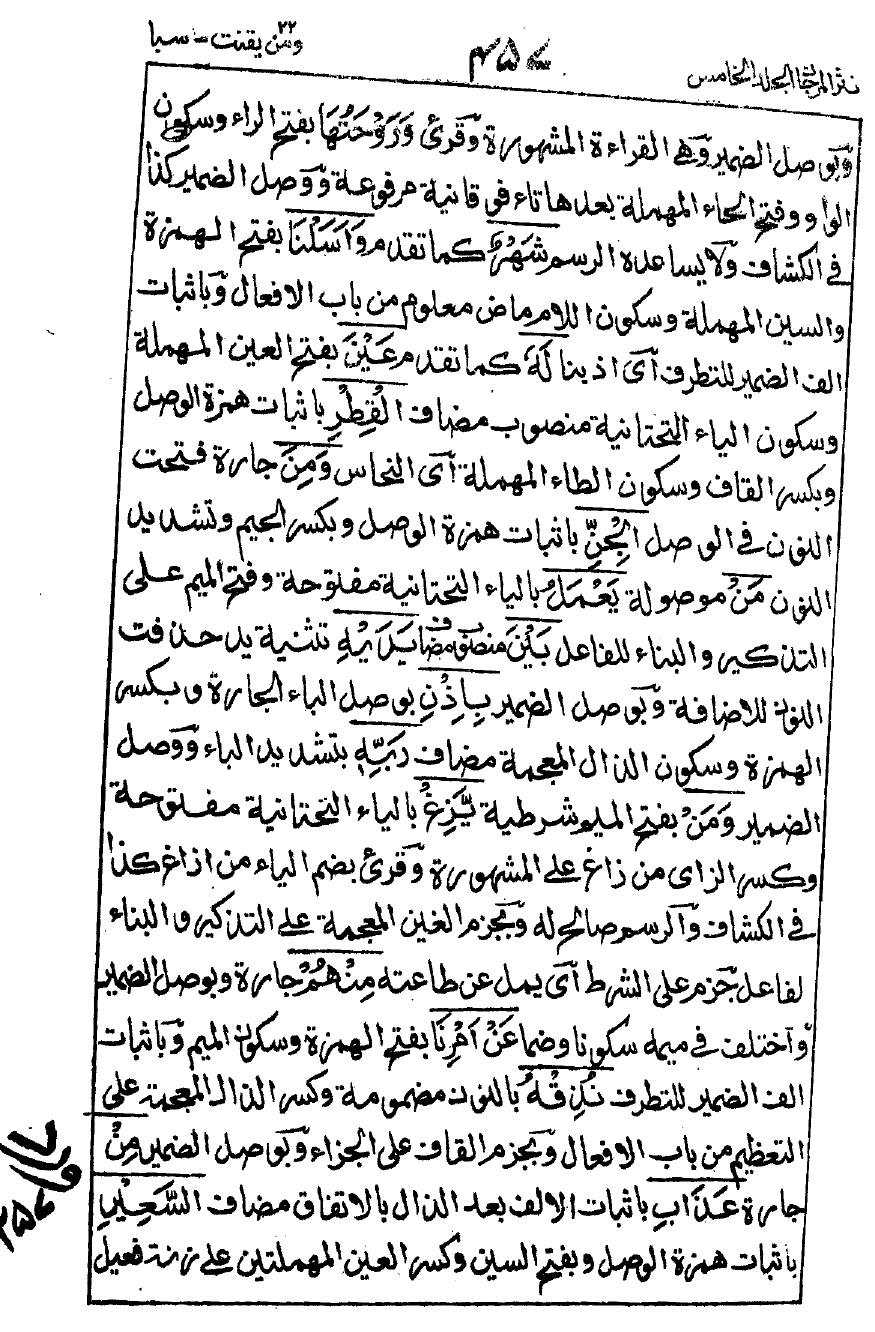 نثر المرجان المجلد الخامس
۴۵۷
ومن يقنت ۲۲ - سبا
وَبوصل الضمير وَهي القراءة المشهورة وَقرئ وَرَوْحَتُهَا بفتح الراء وسكون
الواو وفتح الحاء المهملة بعدها تاء فوقانية مرفوعة وَوصل الضمير كذا
في الكشاف وَلا يساعده الرسم شَهْرٌ كما تقدم وَاَسَلْنَا بفتح الهمزة
والسين المهملة وسكون اللام ماض معلوم من باب الافعال وَباثبات
الف الضمير للتطرف اَى اذبنا لَهٗ كما تقدم عَيْنَ بفتح العين المهملة
وسكون الياء التحتانية منصوب مضاف الْقِطْرِ باثبات همزة الوصل
وبكسر القاف وسكون الطاء المهملة اَى النحاس وَمِنَ جارة فتحت
النون في الوصل الْجِنِّ باثبات همزة الوصل وبكسر الجيم وتشديد
النون مَنْ موصولة يَعْمَلُ بالياء التحتانية مفتوحة وفتح الميم على
التذكير والبناء للفاعل بَيْنَ منصوب مضاف يَدَيْهِ تثنية يد حذفت
النون للاضافة وَبوصل الضمير بِاِذْنِ بوصل الباء الجارة وبكسر
الهمزة وسكون الذال المعجمة مضاف رَبِّهٖ بتشديد الباء وَوصل
الضمير وَمَنْ بفتح الميم شرطية يَّزِغْ بالياء التحتانية مفتوحة
وكسر الزاى من زاغ على المشهورة وَقرئ بضم الياء من ازاغ كذا
في الكشاف وَالرسم صالح له وَبجزم الغين المعجمة على التذكير والبناء
لفاعل جَزم على الشرط اَى يمل عن طاعته مِنْهُمْ جارة وبوصل الضمير
وَاختلف في ميمه سكونا وضما عَنْ اَمْرِنَا بفتح الهمزة وسكون الميم وَباثبات
الف الضمير للتطرف نُذِقْهُ بالنون مضمومة وكسر الذال المعجمة على
التعظيم من باب الافعال وَبجزم القاف على الجزاء وَبوصل الضمير مِنْ
جارة عَذَابِ باثبات الالف بعد الذال بالاتفاق مضاف السَّعِيْرِ
باثبات همزة الوصل وبفتح السين وكسر العين المهملتين على زنة فعيل